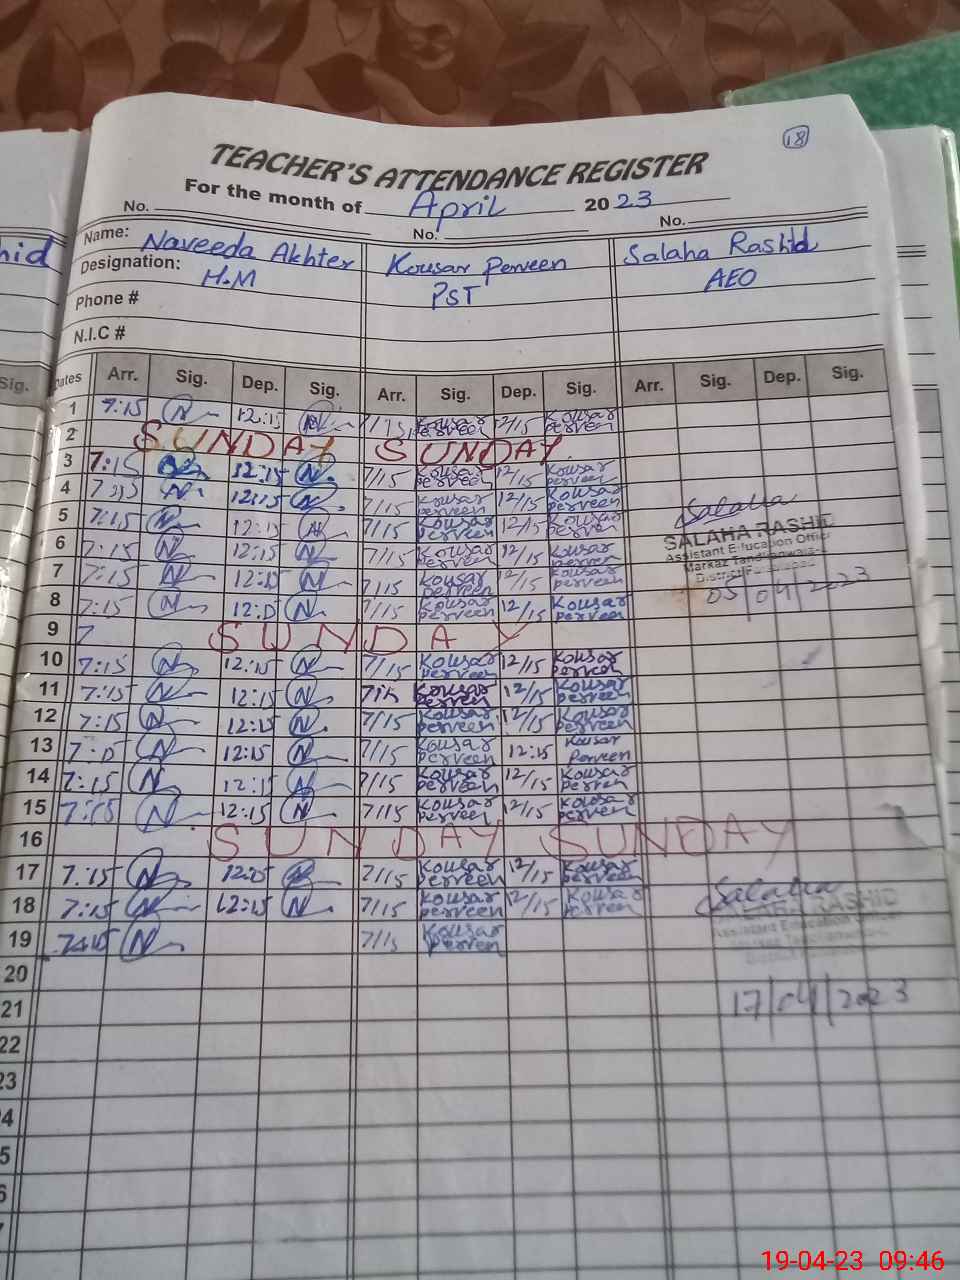 18
TEACHER'S ATTENDANCE REGISTER
For the month of April 2023
No. No. No.
Name: Naveeda Akhter Kousar Perveen Salaha Rashid
Designation: H.M PST AEO
Phone #
N.I.C #
Sig. Dates Arr. Sig. Dep. Sig. Arr. Sig. Dep. Sig. Arr. Sig. Dep. Sig.
1 7:15 N 12:15 N 7/15 Kousar perveen 12/15 Kousar perveen
2 SUNDAY SUNDAY
3 7:15 N 12:15 N 7/15 Kousar perveen 12/15 Kousar perveen
4 N 12:15 N 7/15 Kousar perveen 12/15 Kousar perveen
5 7:15 N 12:15 N 7/15 Kousar perveen 12/15 Kousar
6 7:15 N 12:15 N 7/15 Kousar perveen 12/15 Kousar perveen
7 7:15 N N 7/15 Kousar perveen 12/15 Kousar perveen
8 7:15 N 12:15 N 7/15 Kousar perveen 12/15 Kousar perveen
Salaha
SALAHA RASHID
Assistant Education Officer
Markaz Tandlianwala-
District Faisalabad
05/04/2023
9 7 SUNDAY
10 7:15 N 12:15 N 7/15 Kousar perveen 12/15 Kousar perveen
11 7:15 N 12:15 N Kousar perveen 12/15 Kousar perveen
12 7:15 N 12:15 N 7/15 Kousar perveen 12/15 Kousar perveen
13 7:15 N 12:15 N 7/15 Kousar perveen 12:15 Kousar Perveen
14 7:15 N 12:15 N 7/15 Kousar perveen 12/15 Kousar perveen
15 7:15 N 12:15 N 7/15 Kousar perveen 12/15 Kousar perveen
16 SUNDAY SUNDAY
17 7:15 N 12:15 N 7/15 Kousar perveen 12/15 Kousar perveen
18 7:15 N 12:15 N 7/15 Kousar perveen 12/15 Kousar perveen
19 N 7/15 Kousar perveen
Salaha
SALAHA RASHID
Assistant Education Officer
17/04/2023
20
21
22
23
4
5
6
7
19-04-23 09:46